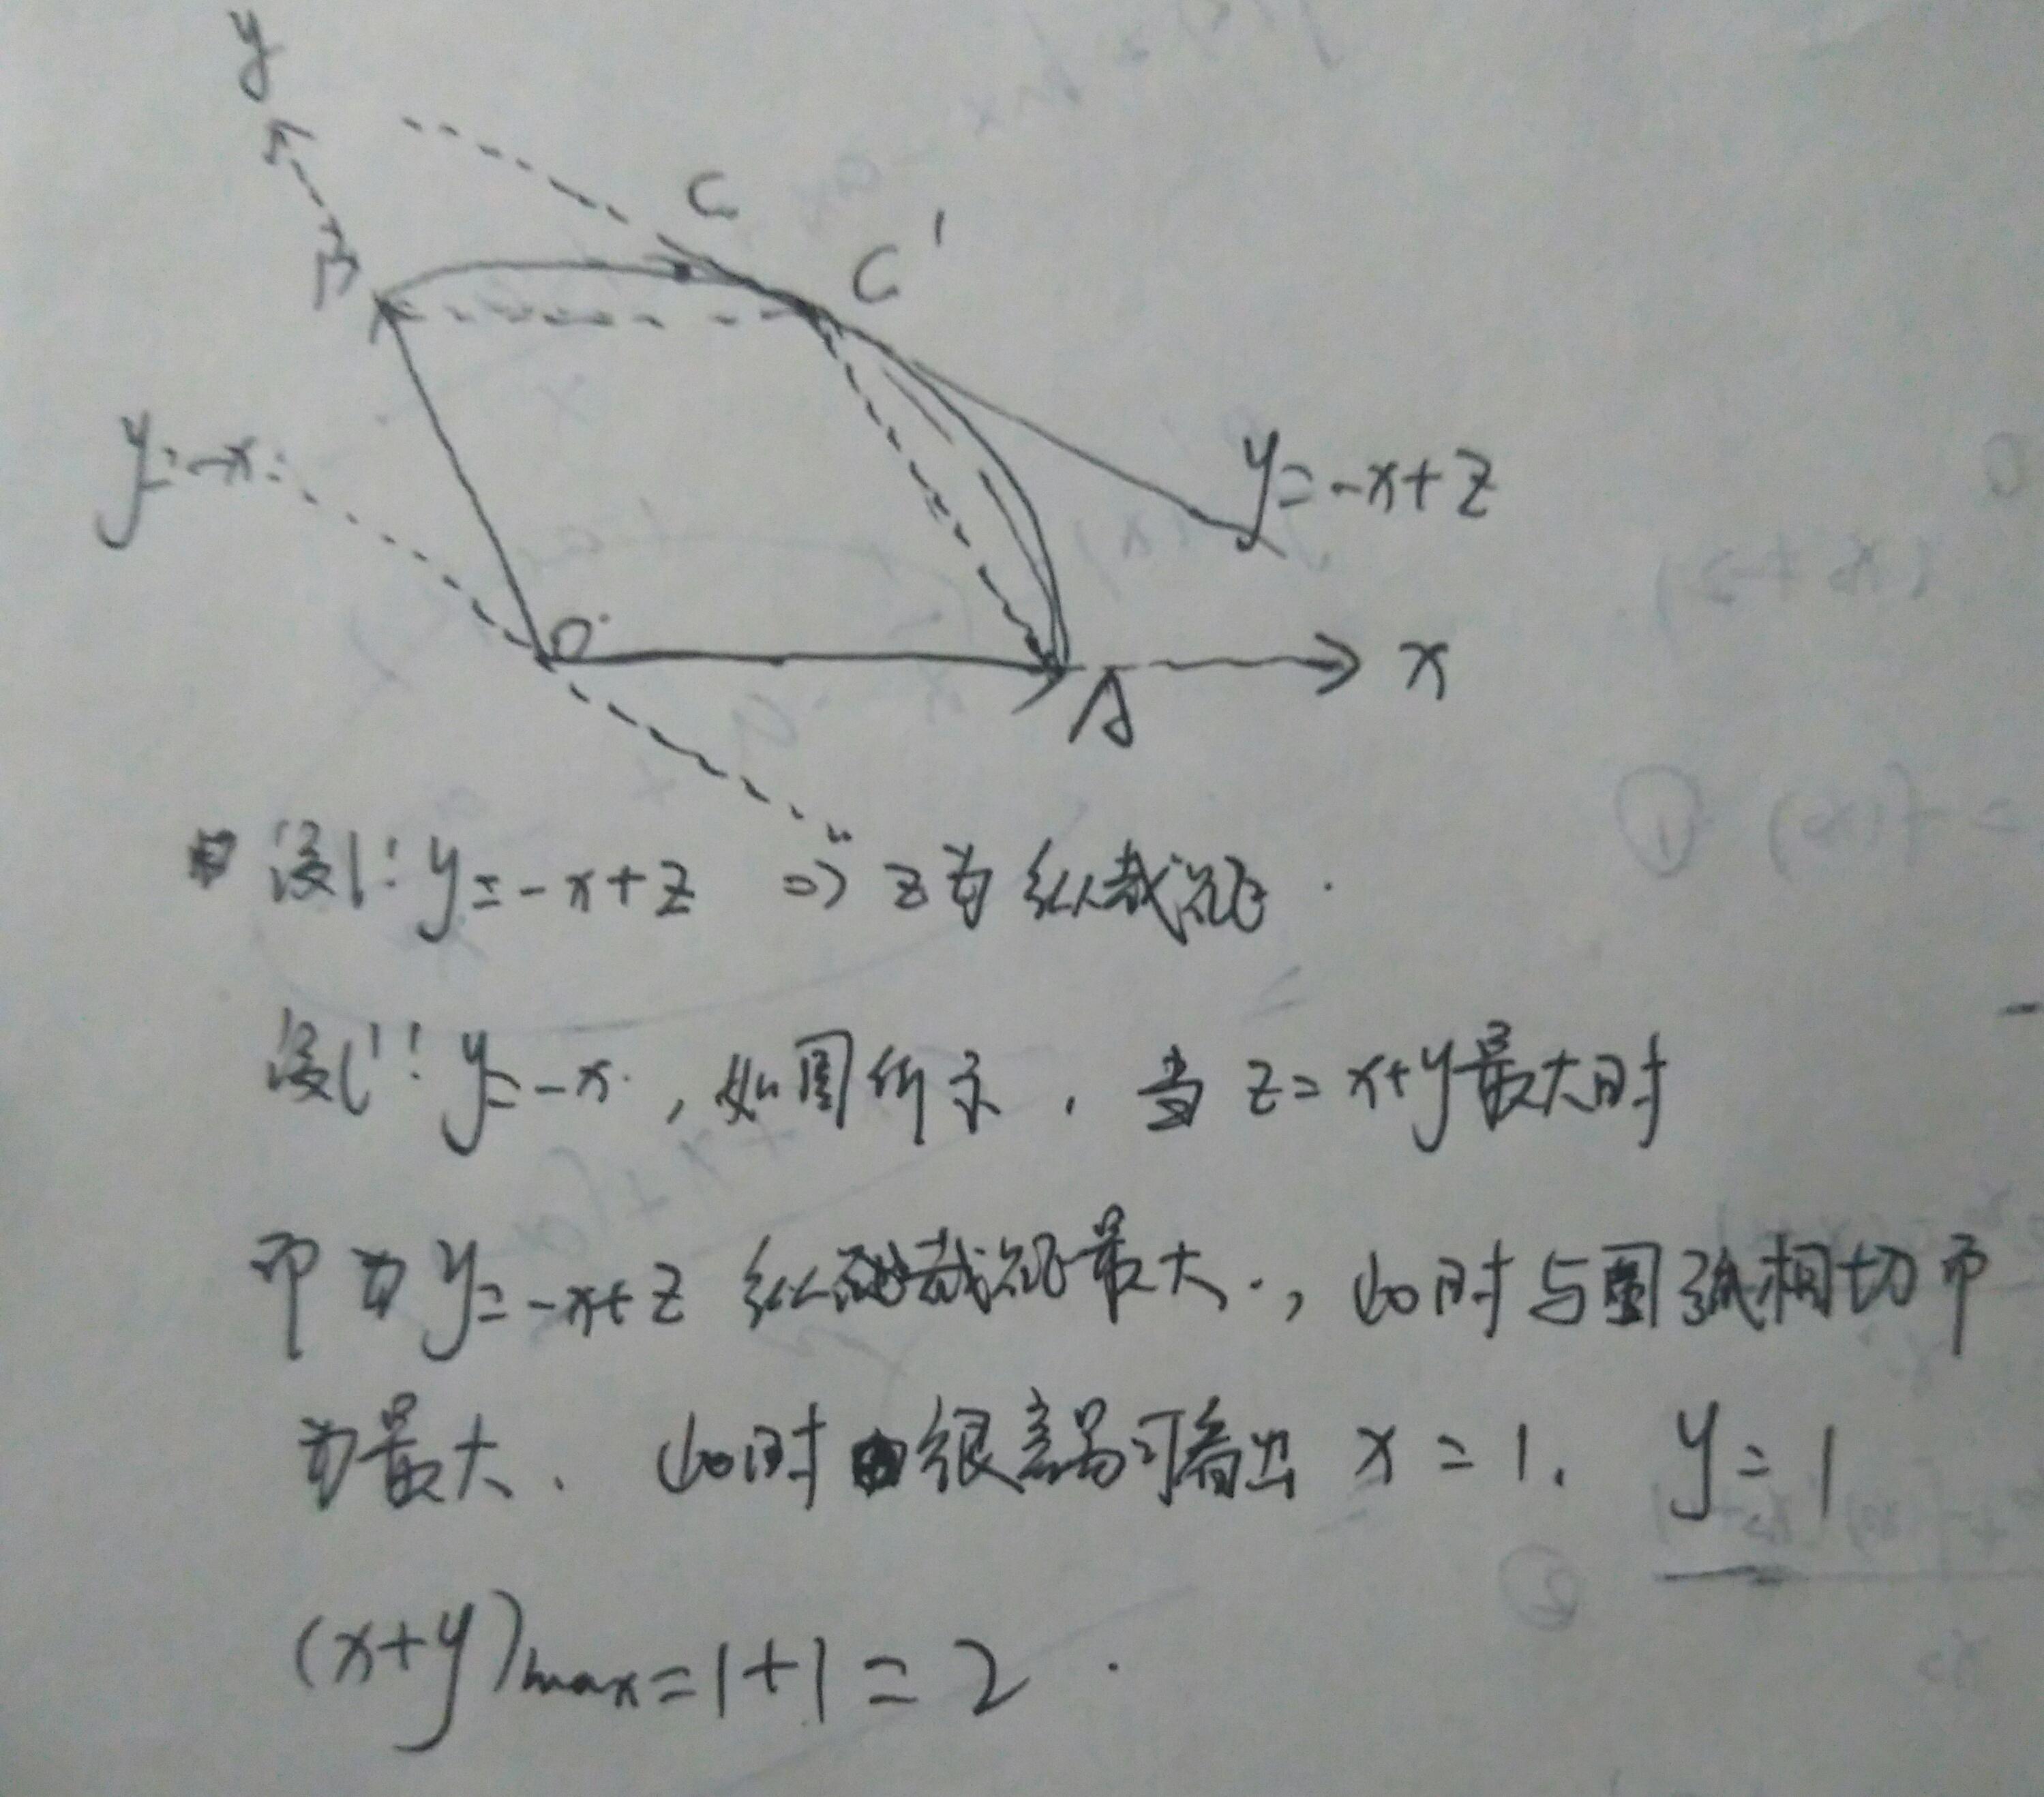 y
C
C'
B
y=-x
y=-x+z
O
A
x
设l:y=-x+z ⇒ z为纵截距.
设l':y=-x,如图所示,当z=x+y最大时
即为y=-x+z纵截距最大.,此时与圆弧相切即
为最大.此时很容易可看出x=1. y=1
(x+y)max=1+1=2.